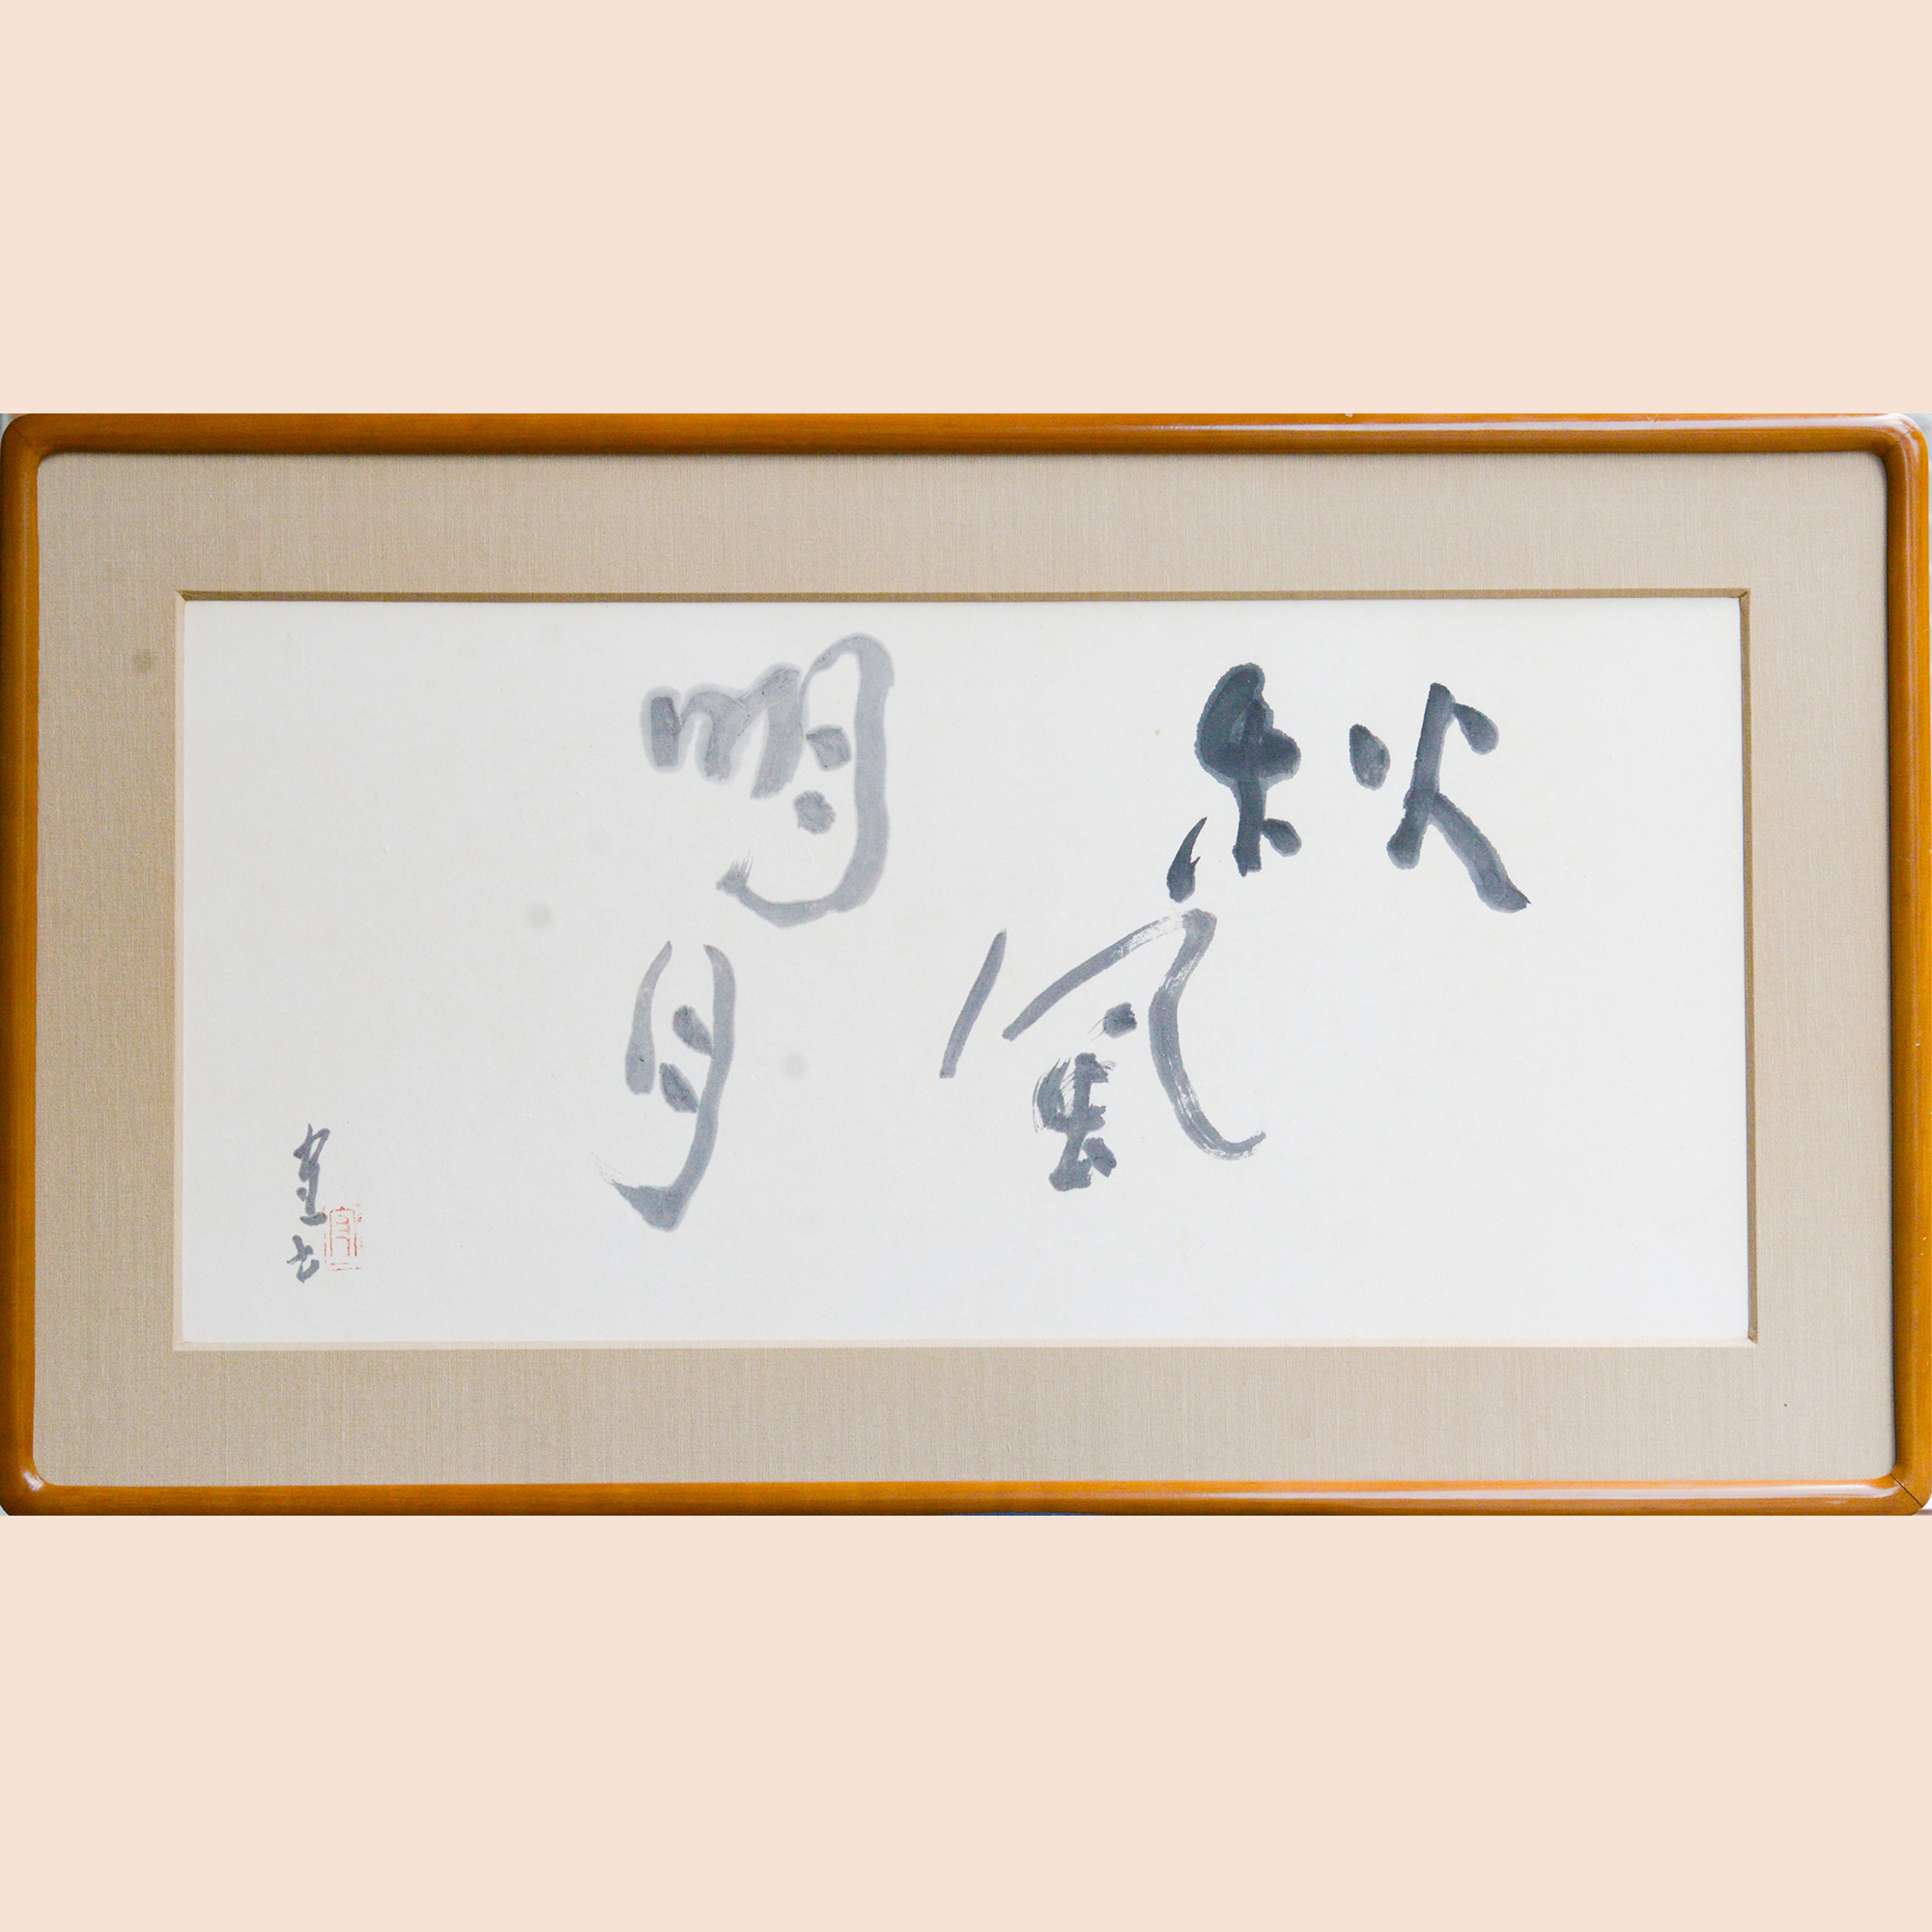 秋風
明月